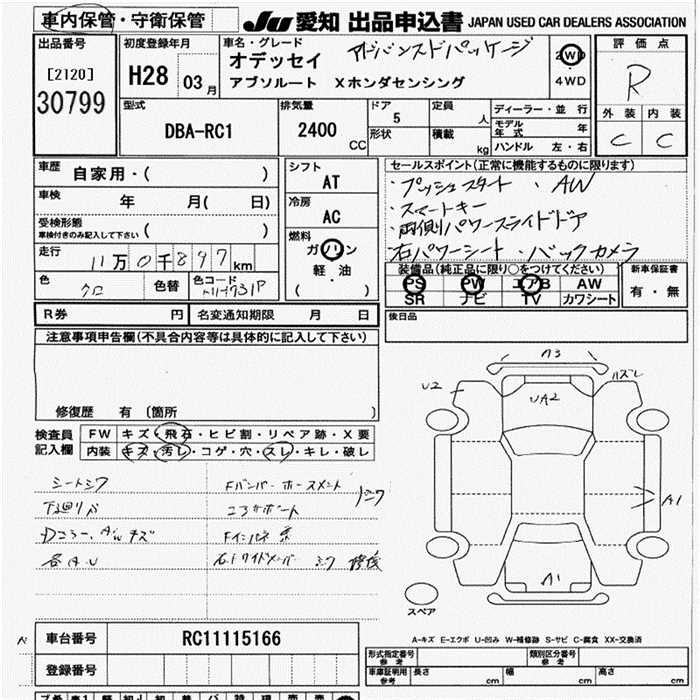 車内保管・守衛保管
JU 愛知 出品申込書 JAPAN USED CAR DEALERS ASSOCIATION
出品番号
[2120]
30799
初度登録年月
H28 03月
車名・グレード
オデッセイ アドバンスドパッケージ
アブソルート Xホンダセンシング
2WD
4WD
評価点
R
外装 内装
C C
型式
DBA-RC1
排気量
2400 CC
ドア
5
形状
定員
人
積載
kg
ディーラー・並行
モデル年式 年
ハンドル 左・右
車歴
自家用・( )
車検
年 月( 日)
受検形態
車検付きのみ記入して下さい ( )
走行
11万0千897km
色
クロ
色替
色コード
シフト
AT
冷房
AC
燃料
ガソリン
軽・油
( )
セールスポイント(正常に機能するものに限ります)
・プッシュスタート ・AW
・スマートキー
・両側パワースライドドア
・右パワーシート ・バックカメラ
装備品(純正品に限り○をつけてください)
PS PW エアB AW
SR ナビ TV カワシート
新車保証書
有・無
R券 円
名変通知期限 月 日
後日品
注意事項申告欄(不具合内容等は具体的に記入して下さい)
修復歴 有 (箇所 )
検査員記入欄
FW キズ・飛石・ヒビ割・リペア跡・X要
内装 キズ・汚レ・コゲ・穴・スレ・キレ・破レ
シートシワ
下廻りサビ
Dミラー、A/Wキズ
各A・U
コアサポート
修復
A3
U2
ハズレ
UA2
A1
A1
スペア
A-キズ E-エクボ U-凹み W-補修跡 S-サビ C-腐食 XX-交換済
車台番号
RC11115166
登録番号
形式指定番号 参考
類別区分番号 参考
車庫証明用 参考
長さ cm
幅 cm
高さ cm